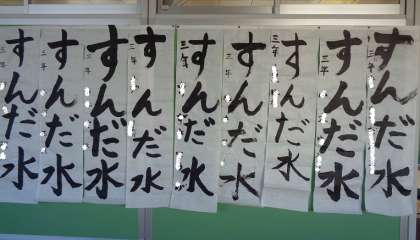 すんだ水
三年
すんだ水
三年
すんだ水
三年
すんだ水
三年
すんだ水
三年
すんだ水
三年
すんだ水
三年
すんだ水
三年
すんだ水
三年